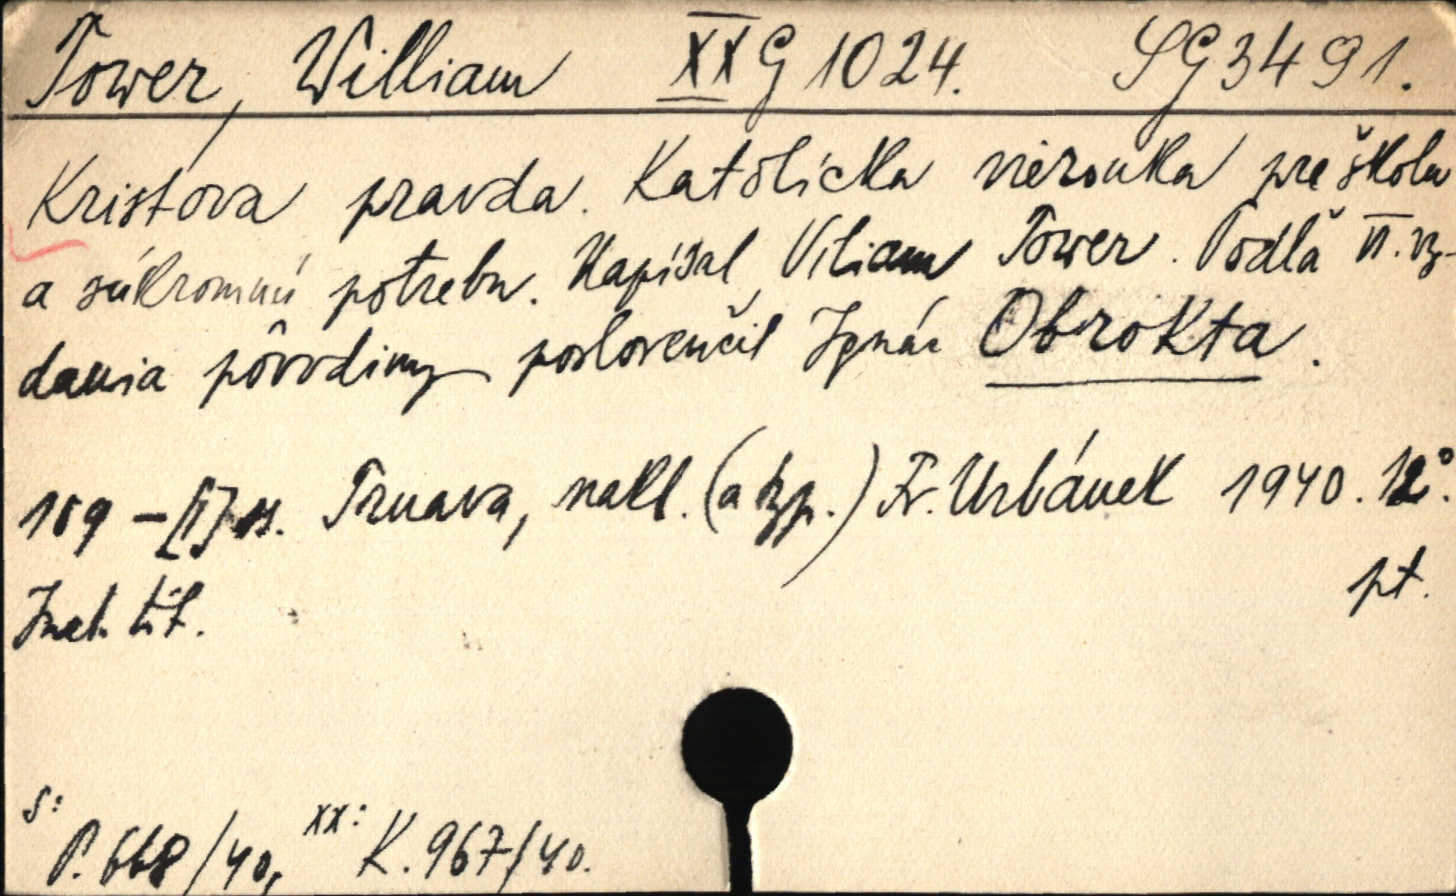 Tower, William XX G 1024. SG 3491.
Kristova pravda. Katolícka vierouka pre školu
a súkromnú potrebu. Napísal Viliam Tower. Podľa VI. vy-
dania pôvodiny poslovenčil Ignác Obrokta.
189 - [I] s. Trnava, nakl. (a typ.) Fr. Urbánek 1940. 12°.
pt.
tit.
S: P. 668/40, XX: K. 967/40.